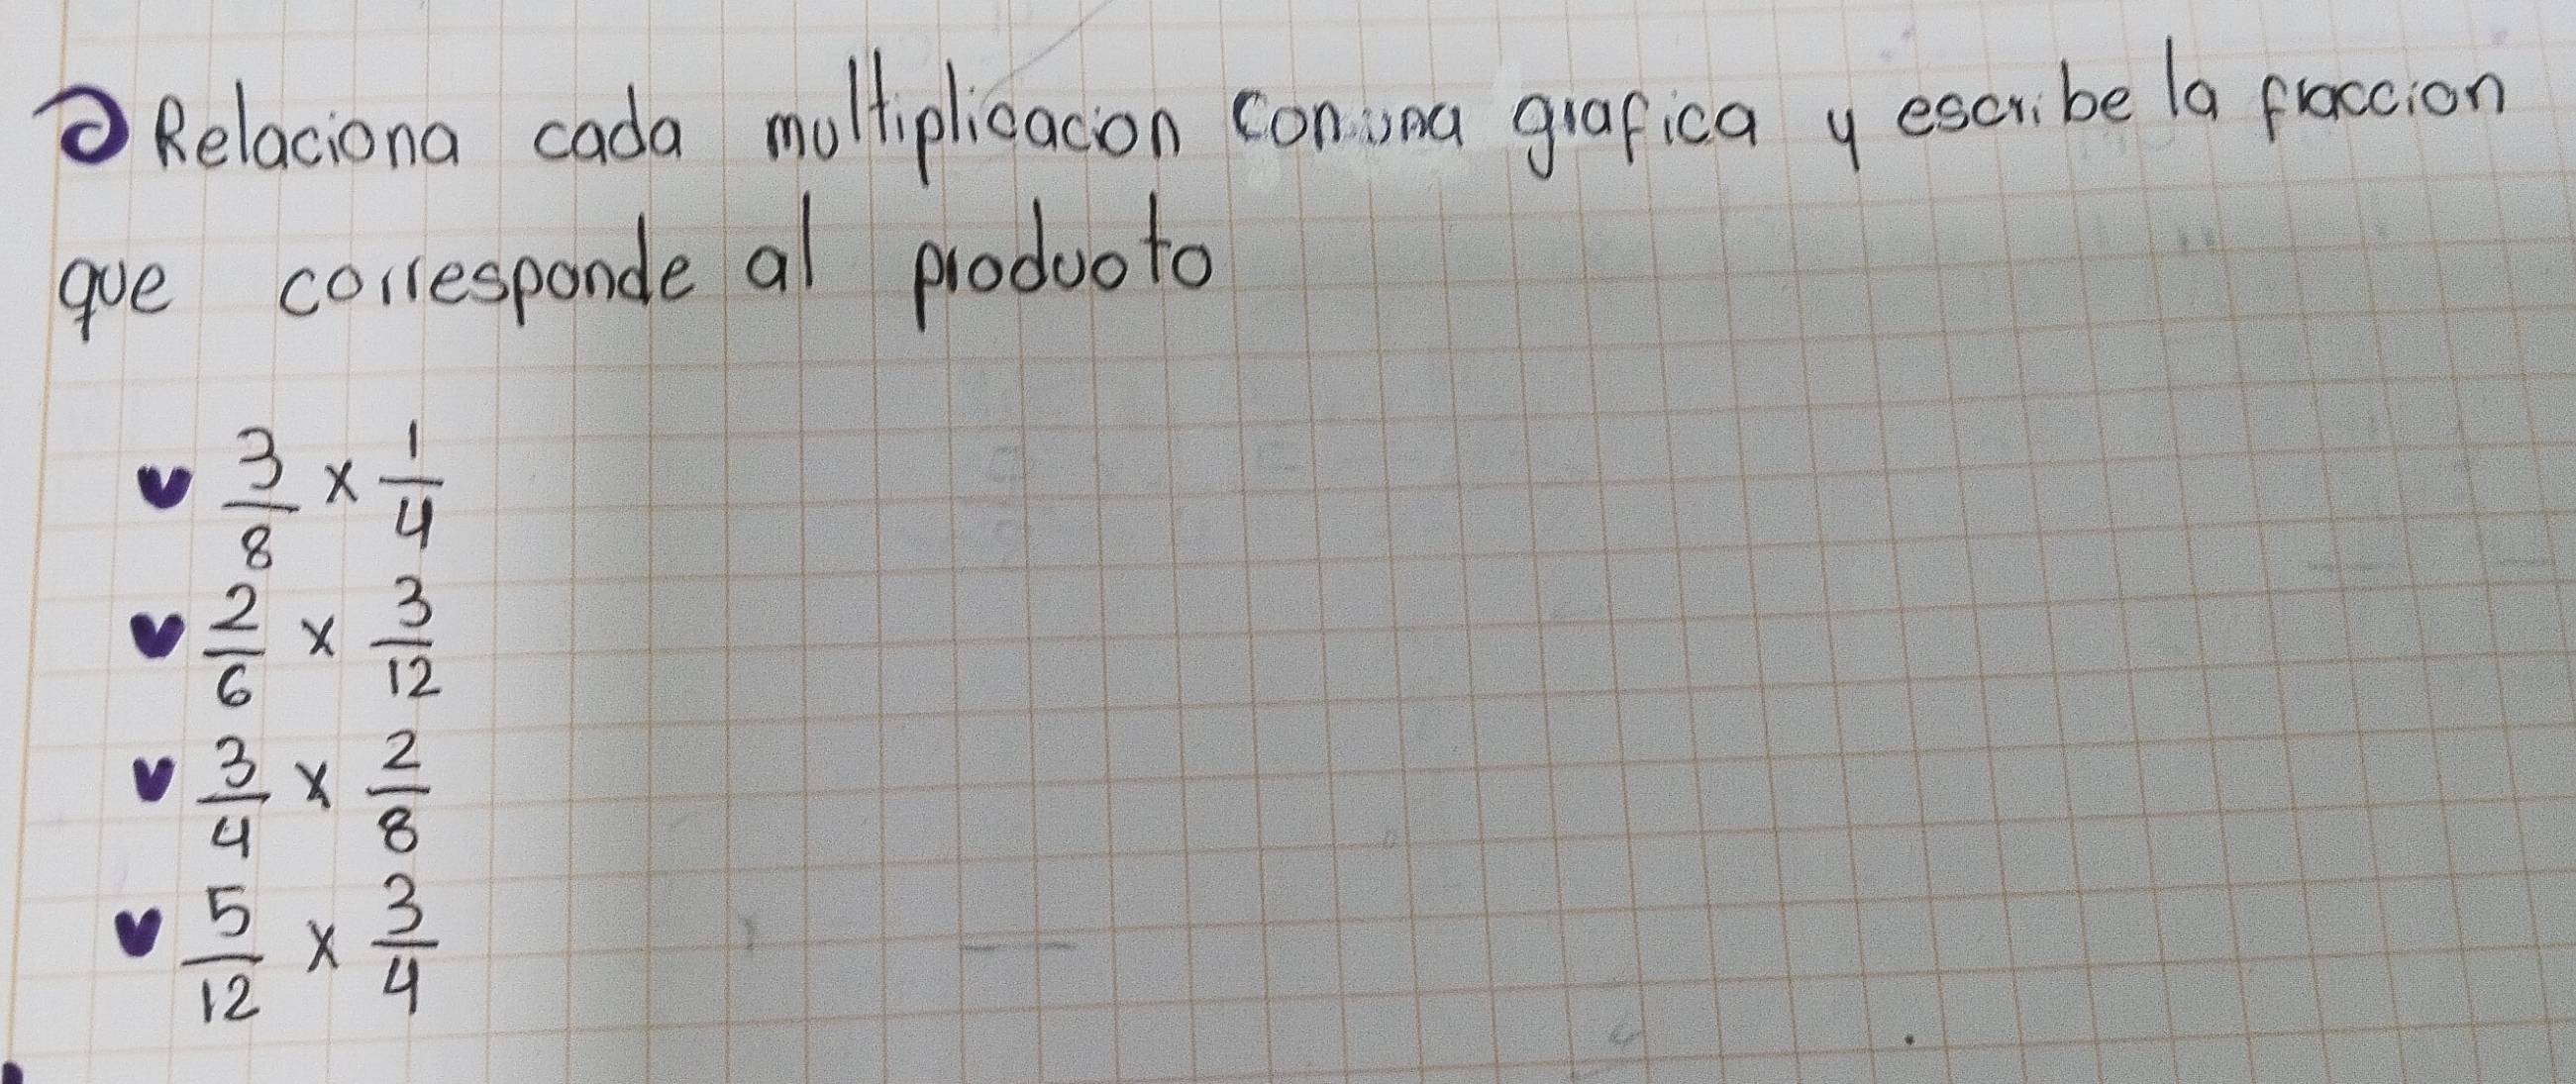 Relaciona cada multiplicacion con una grafica y escribe la fraccion
que corresponde al producto
3/8 x 1/4
2/6 x 3/12
3/4 x 2/8
5/12 x 3/4